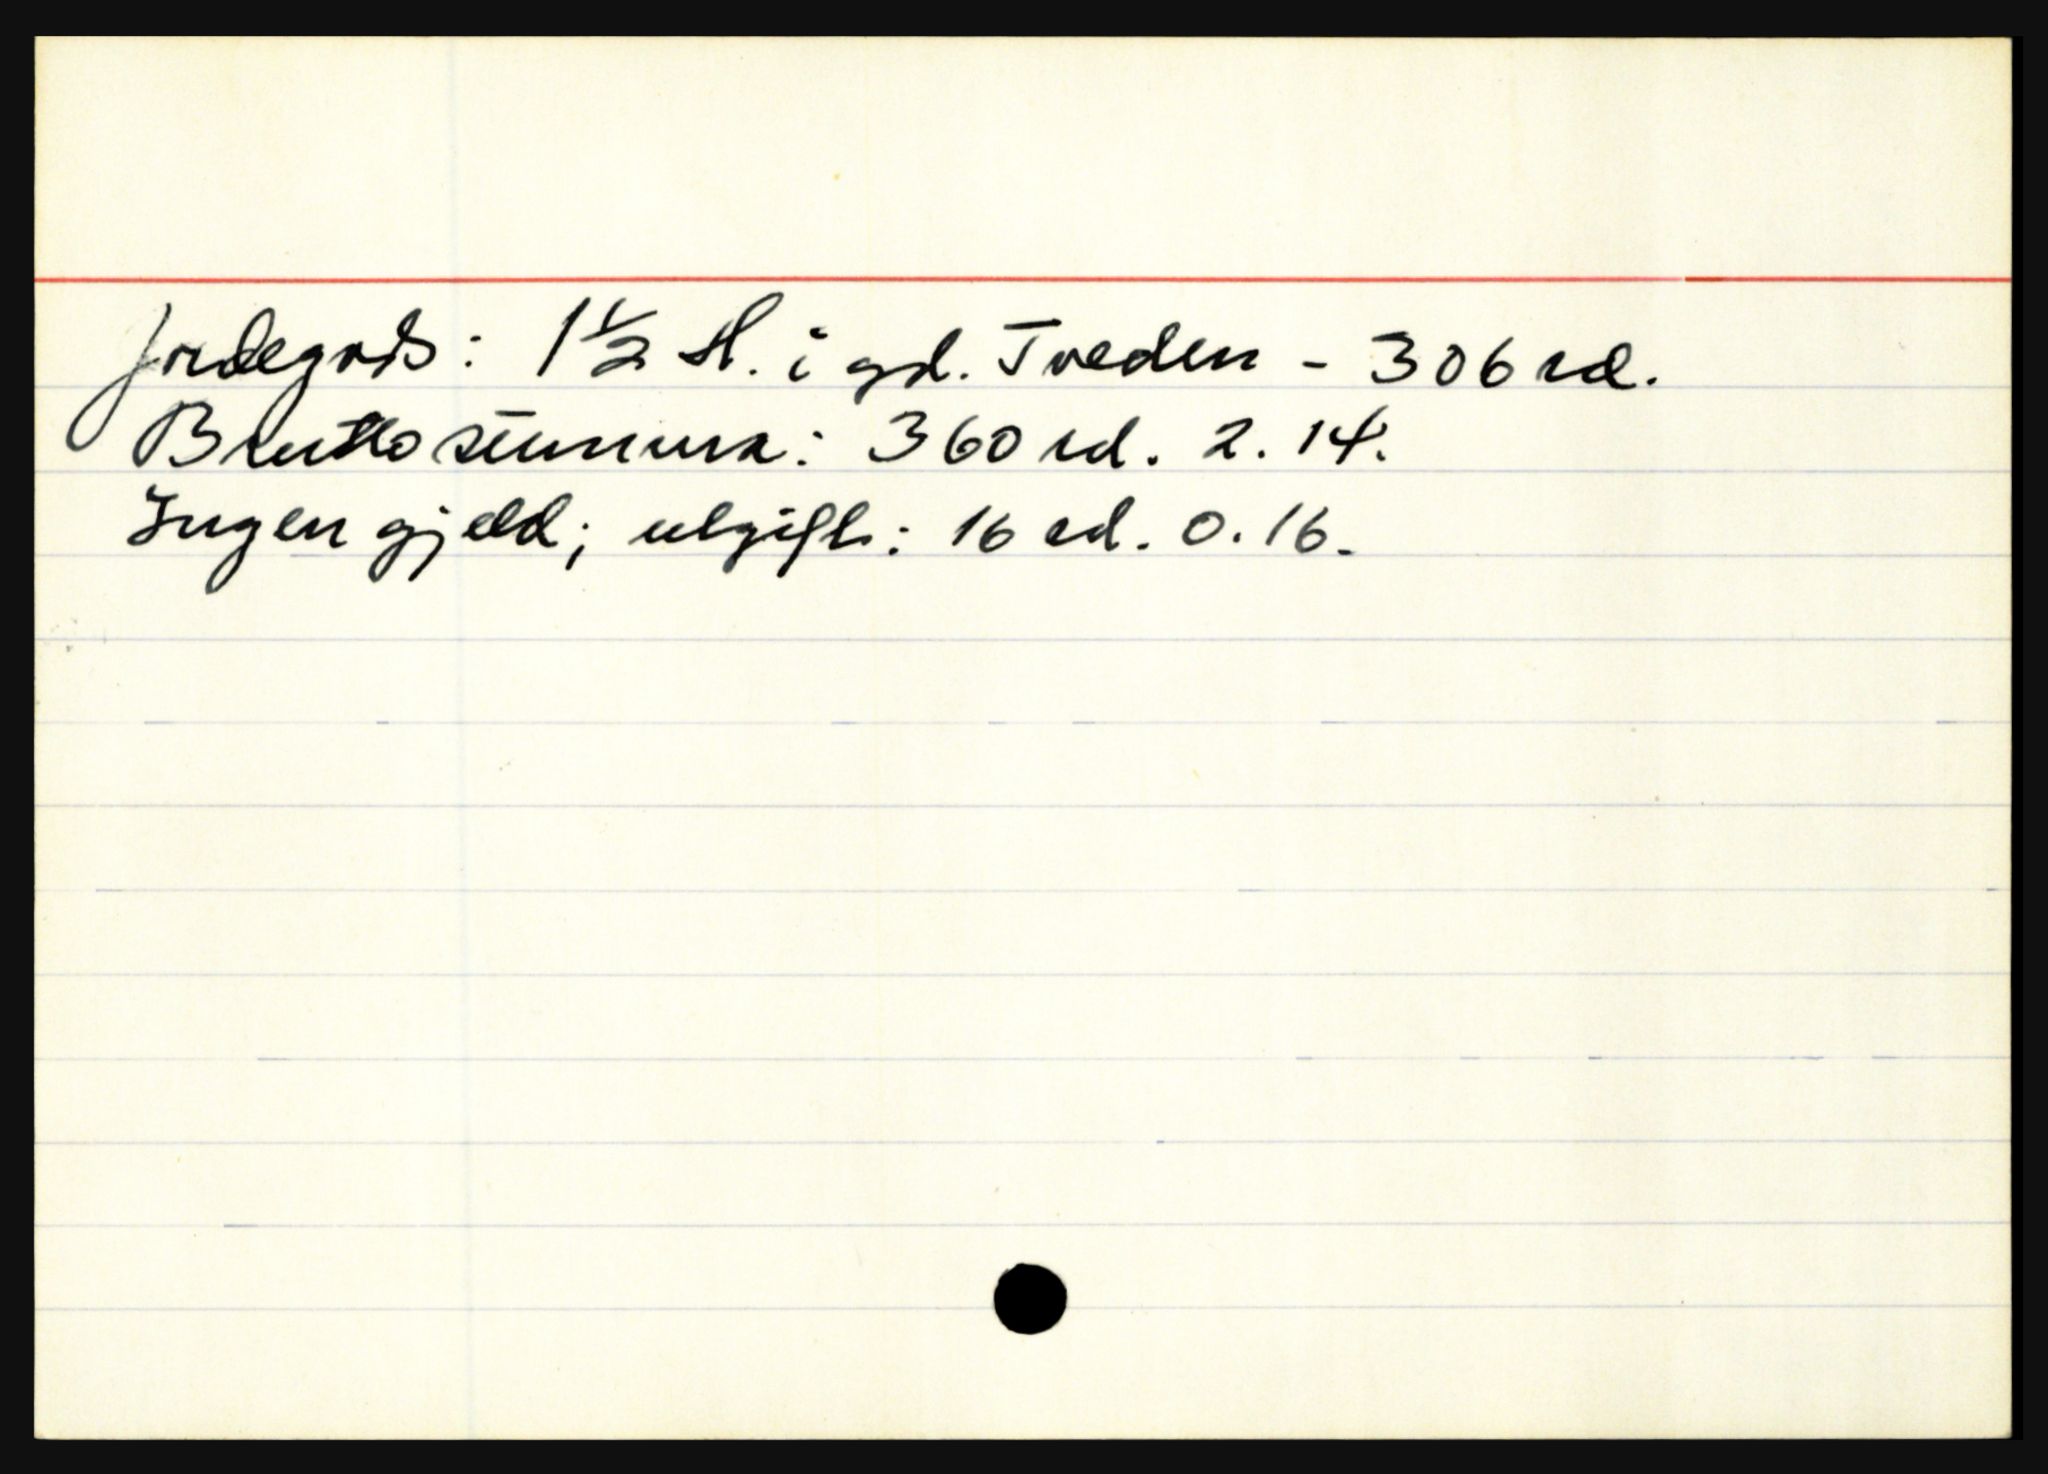 Jordegods: 1 1/2 H. i gd. Tveden - 306 rd.
Bruttosumma: 360 rd. 2. 14.
Ingen gjeld; utgift: 16 rd. 0. 16.